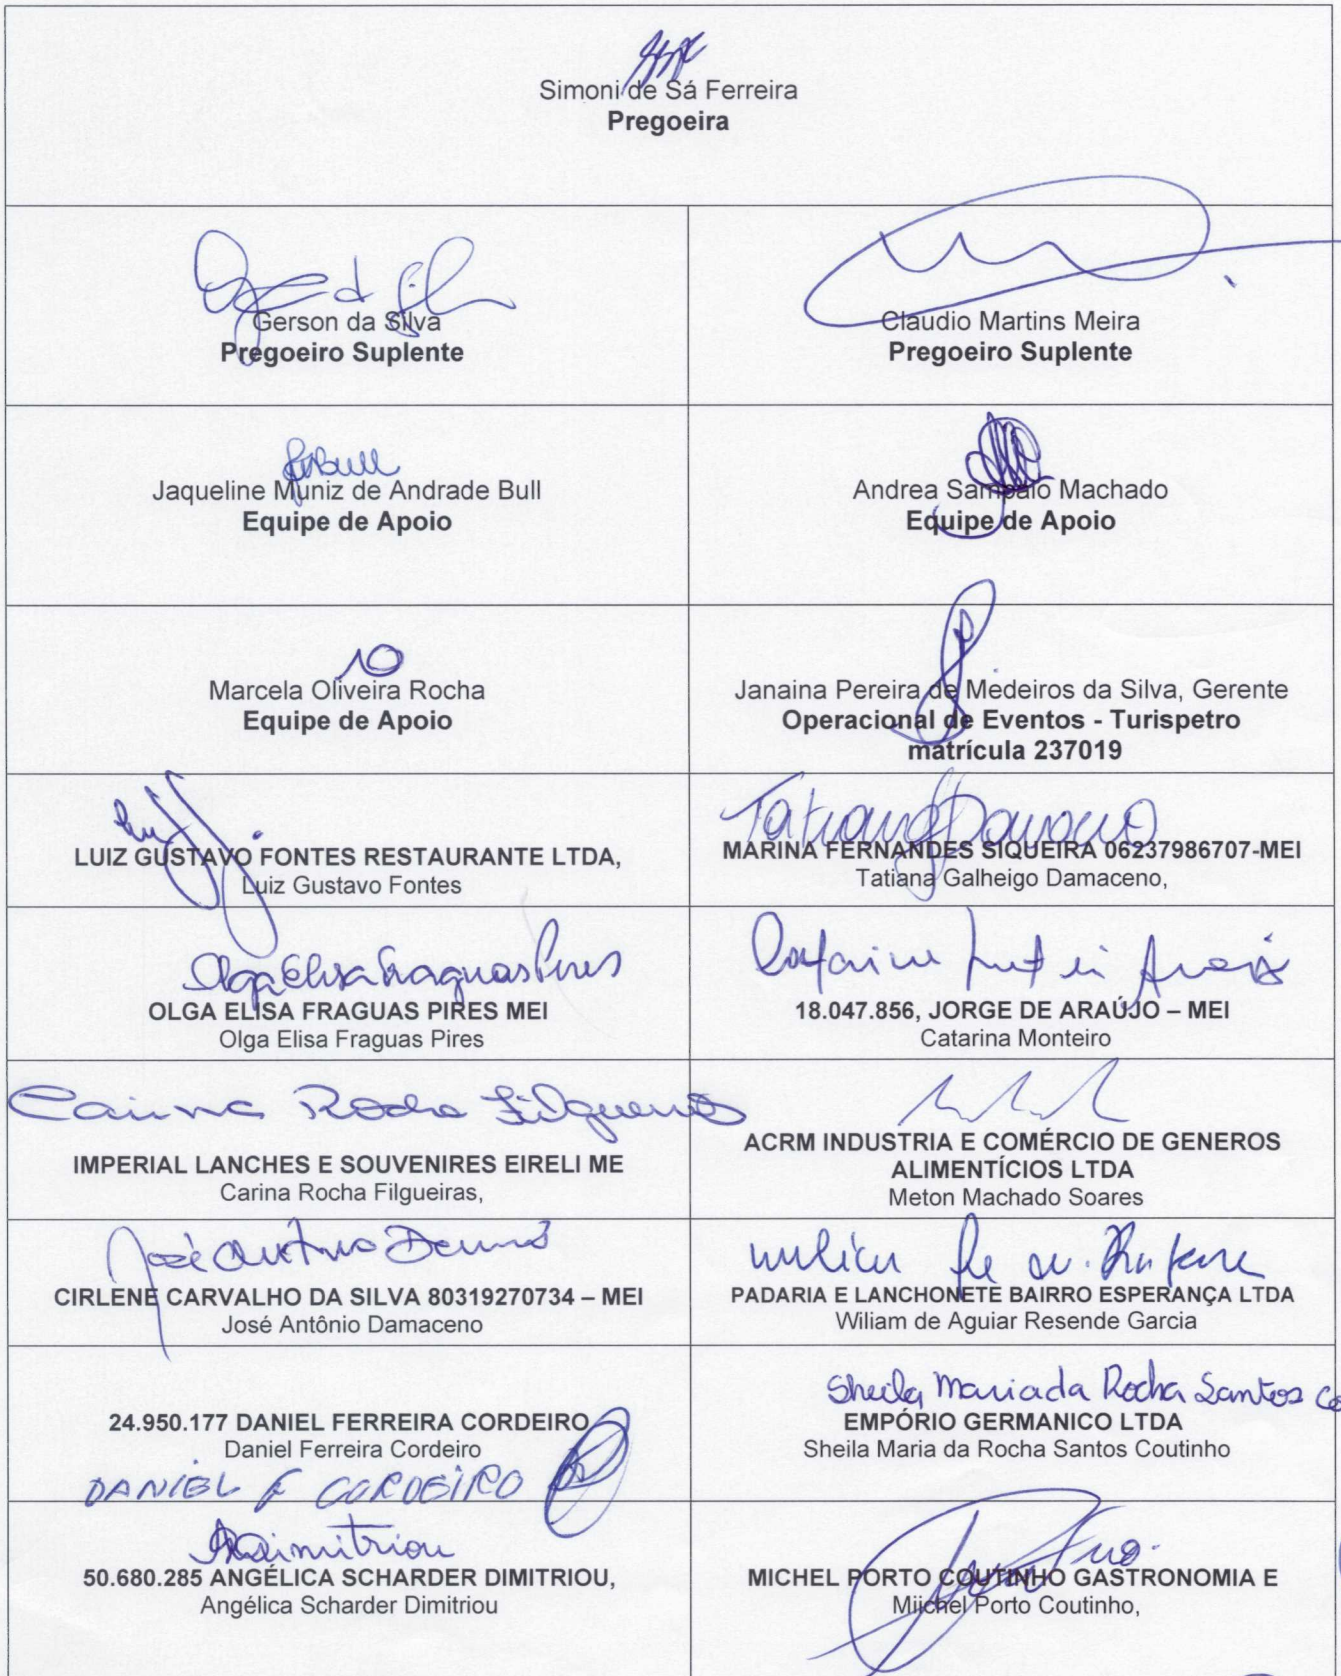 Simoni de Sá Ferreira
Pregoeira
Gerson da Silva
Pregoeiro Suplente
Claudio Martins Meira
Pregoeiro Suplente
Jaqueline Muniz de Andrade Bull
Equipe de Apoio
Andrea Sampaio Machado
Equipe de Apoio
Marcela Oliveira Rocha
Equipe de Apoio
Janaina Pereira de Medeiros da Silva, Gerente
Operacional de Eventos - Turispetro
matrícula 237019
LUIZ GUSTAVO FONTES RESTAURANTE LTDA,
Luiz Gustavo Fontes
Tatiana Damaceno
MARINA FERNANDES SIQUEIRA 06237986707-MEI
Tatiana Galheigo Damaceno,
Olga Elisa Fraguas Pires
OLGA ELISA FRAGUAS PIRES MEI
Olga Elisa Fraguas Pires
18.047.856, JORGE DE ARAÚJO – MEI
Catarina Monteiro
Carina Rocha Filgueiras
IMPERIAL LANCHES E SOUVENIRES EIRELI ME
Carina Rocha Filgueiras,
ACRM INDUSTRIA E COMÉRCIO DE GENEROS
ALIMENTÍCIOS LTDA
Meton Machado Soares
CIRLENE CARVALHO DA SILVA 80319270734 – MEI
José Antônio Damaceno
PADARIA E LANCHONETE BAIRRO ESPERANÇA LTDA
Wiliam de Aguiar Resende Garcia
24.950.177 DANIEL FERREIRA CORDEIRO
Daniel Ferreira Cordeiro
DANIEL F CORDEIRO
Sheila Maria da Rocha Santos Co
EMPÓRIO GERMANICO LTDA
Sheila Maria da Rocha Santos Coutinho
ADimitriou
50.680.285 ANGÉLICA SCHARDER DIMITRIOU,
Angélica Scharder Dimitriou
MICHEL PORTO COUTINHO GASTRONOMIA E
Miichel Porto Coutinho,